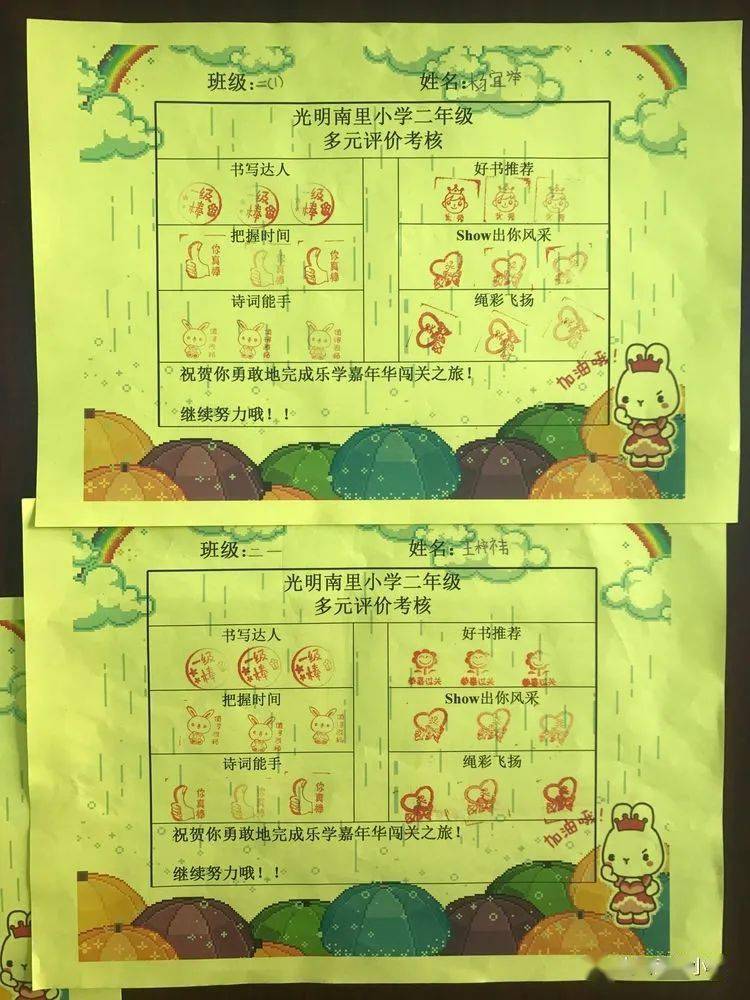 班级:二(1) 姓名:杨宜
光明南里小学二年级
多元评价考核
书写达人 好书推荐
一级棒 一级棒 一级棒
优秀
把握时间 Show出你风采
你真棒 你真棒 你真棒
诗词能手 绳彩飞扬
值得表扬 值得表扬 值得表扬
祝贺你勇敢地完成乐学嘉年华闯关之旅！
加油呀！
继续努力哦！！
班级:二一 姓名:王梓
光明南里小学二年级
多元评价考核
书写达人 好书推荐
一级棒 一级棒 一级棒
恭喜过关 恭喜过关 恭喜过关
把握时间 Show出你风采
值得表扬 值得表扬 值得表扬
诗词能手 绳彩飞扬
你真棒 你真棒 你真棒
祝贺你勇敢地完成乐学嘉年华闯关之旅！
加油呀！
继续努力哦！！
小